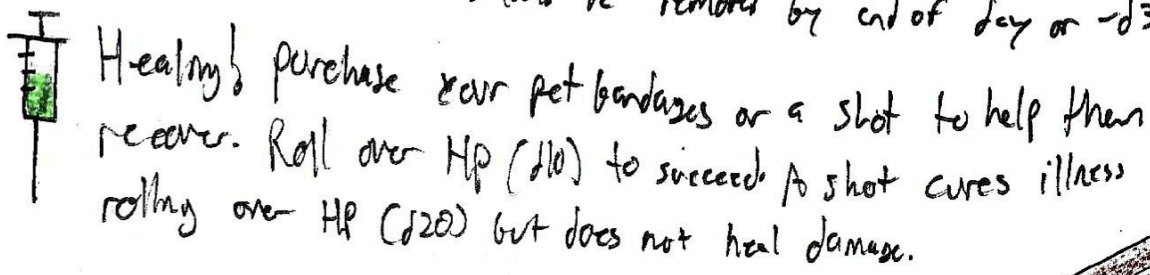 by end of day or -d3
Healing! purchase your pet bandages or a shot to help them
recover. Roll over HP (d10) to succeed. A shot cures illness
rolling over HP (d20) but does not heal damage.